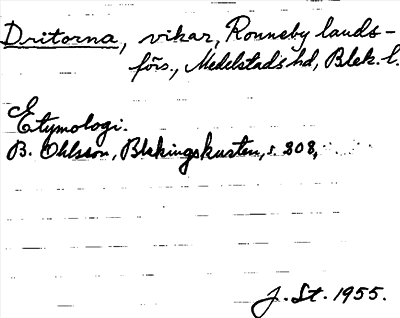 Dritorna, vikar, Ronneby lands-
förs., Medelstads hd, Blek. l.
Etymologi.
B. Ohlsson, Blekingskusten, s. 308,
J. St. 1955.